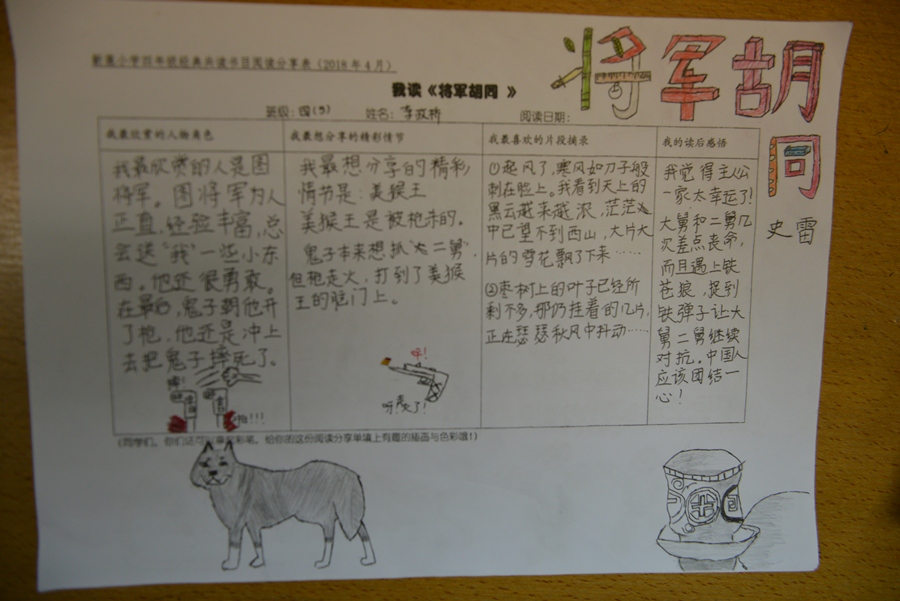 将军胡同
史雷
小学四年级经典共读书目阅读分享表（2018年4月）
我读《将军胡同 》
班级：四(5) 姓名：李政桥 阅读日期：
我最欣赏的人物角色
我最欣赏的人是图
将军。图将军为人
正直，经验丰富，总
会送“我”一些小东
西。他还很勇敢。
在最后，鬼子朝他开
了枪，他还是冲上
去把鬼子摔死了。
我最想分享的精彩情节
我最想分享的精彩
情节是：美猴王
美猴王是被枪杀的。
鬼子本来想抓“二舅”，
但枪走火，打到了美猴
王的脑门上。
呀！走火了！
我最喜欢的片段摘录
①起风了，寒风如刀子般
刺在脸上。我看到天上的
黑云越来越浓，茫茫
中已望不到西山，大片大
片的雪花飘了下来……
②枣树上的叶子已经所
剩不多，那仍挂着的几片，
正在瑟瑟秋风中抖动……
我的读后感悟
我觉得主人公
一家太幸运了！
大舅和二舅几
次差点丧命，
而且遇上铁
苍狼，捉到
铁弹子让大
舅二舅继续
对抗。中国人
应该团结一
心！
（同学们，你们还可以拿起彩笔，给你的这份阅读分享单填上有趣的插画与色彩哦！）